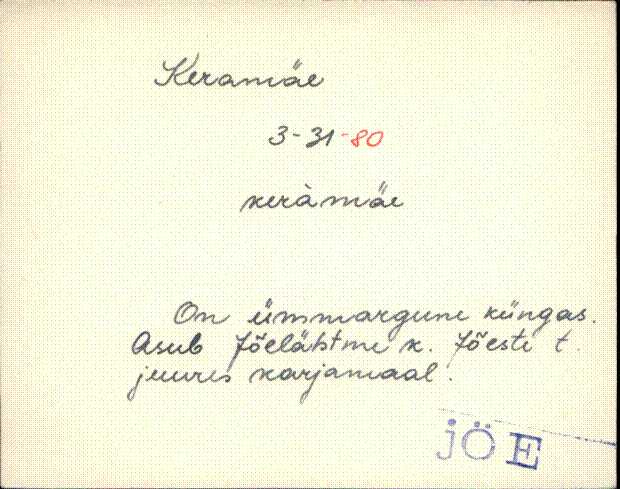 Keramäe
3-31-80
keràmäe
On ümmargune küngas.
Asub Jõelähtme k. Jõesti t.
juures karjamaal.
JÕE